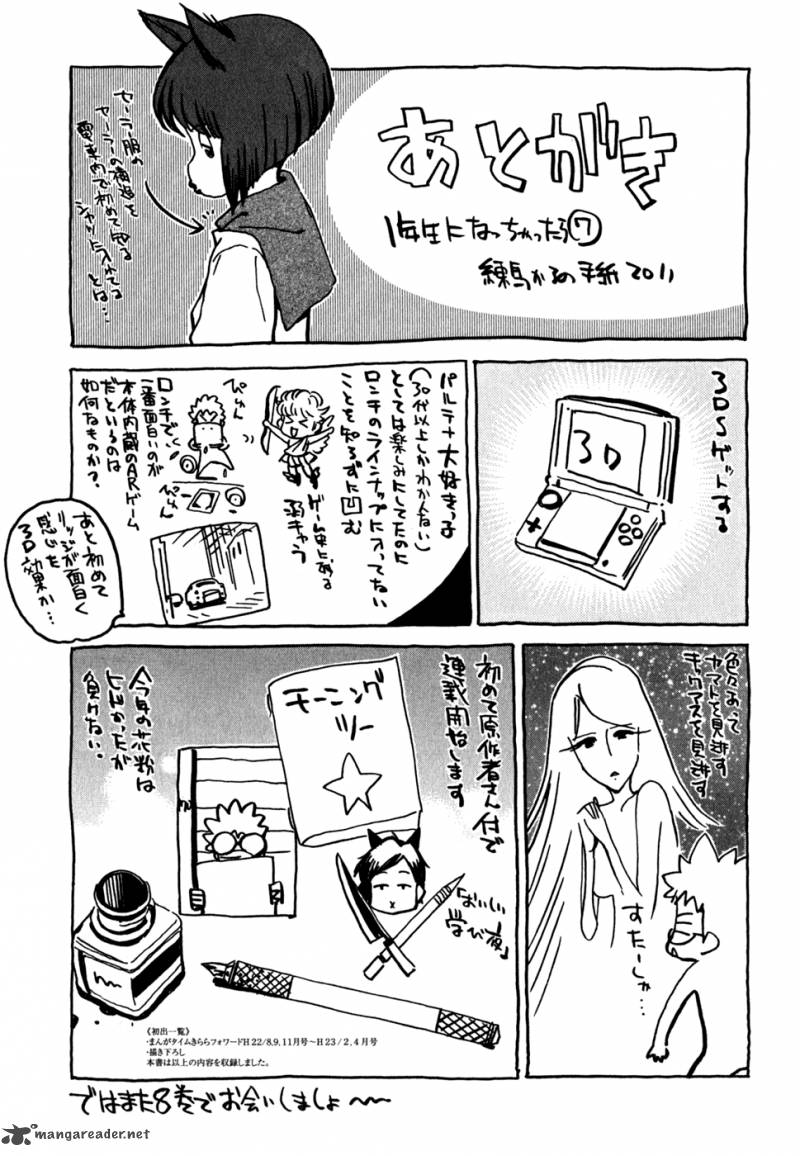 あとがき
1年生になっちゃったら⑦
練馬かるの手紙2011
セーラー服の
セーラーの構造を
電車内で初めて知る
シャツに入れてる
とは…
3DSゲットする
3D
パルテナ大好きっ子
(30代以上しかわかんない)
としては楽しみにしてたのに
ロンチのラインナップに入ってない
ことを知らずに凹む
ぴゅん
ゲーム史に残る
弱キャラ
ロンチで
一番面白いのが
本体内蔵のARゲーム
だというのは
如何なものか?
ぴゅん
あと初めて
リッジが面白く
感じた
3D効果か…
色々あって
ヤマトを見逃す
キックアスを見逃す
すたーしゃ…
初めて原作者さん付で
連載開始します
モーニング
ツー
「おいしい
学び夜」
今年の花粉は
しんどかったが
負けない.
《初出一覧》
・まんがタイムきららフォワードH22/8,9,11月号～H23/2,4月号
・描き下ろし
本書は以上の内容を収録しました。
ではまた8巻でお会いしましょ～
mangareader.net